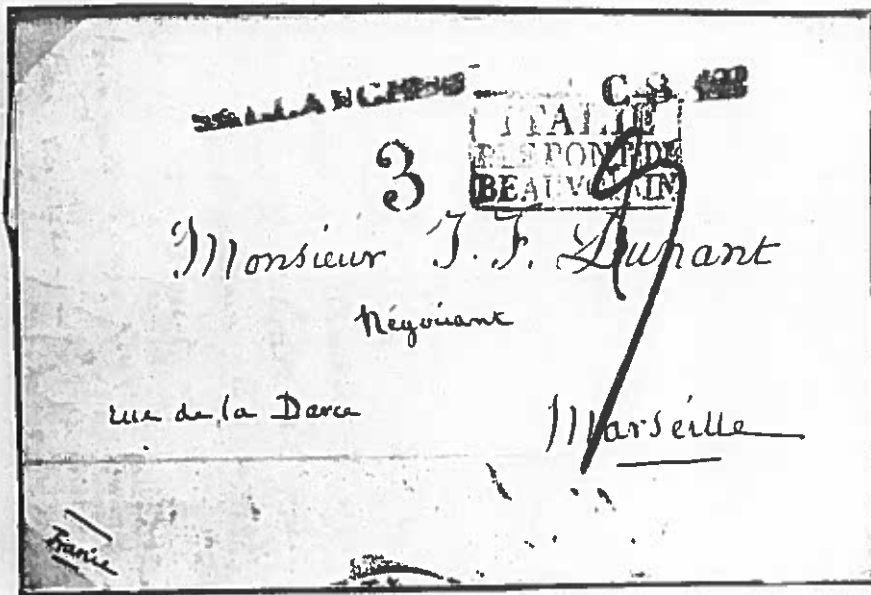 SALLANCHES
C.S
ITALIE
PAR LE PONT DE
BEAUVOISIN
3
Monsieur J. F. Dunant
Négociant
rue de la Darce
Marseille
France